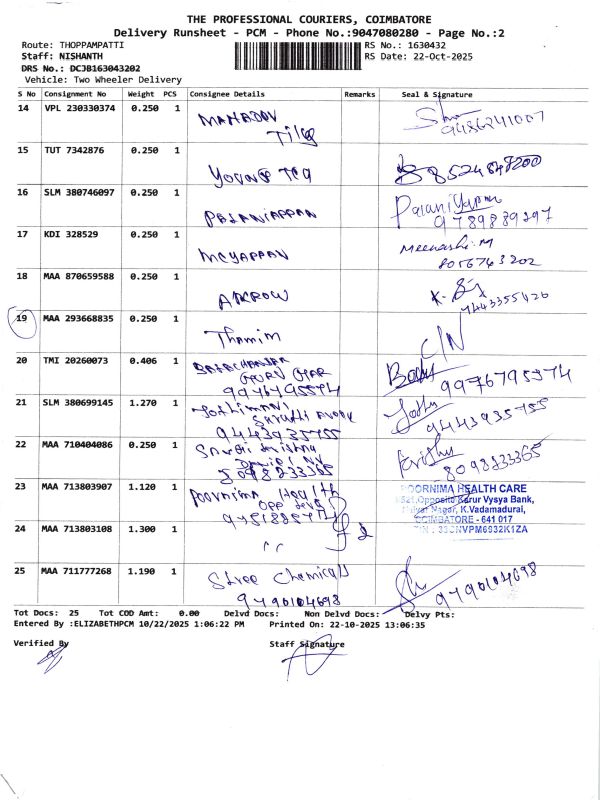 THE PROFESSIONAL COURIERS, COIMBATORE
Delivery Runsheet - PCM - Phone No.:9047080280 - Page No.:2
Route: THOPPAMPATTI
RS No.: 1630432
Staff: NISHANTH
RS Date: 22-Oct-2025
DRS No.: DCJB163043202
Vehicle: Two Wheeler Delivery
S No Consignment No Weight PCS Consignee Details Remarks Seal & Signature
14 VPL 230330374 0.250 1 MAHADEV
Tiles 9486241007
15 TUT 7342876 0.250 1
Young Teq
16 SLM 380746097 0.250 1 PALANIAPPAN PalaniYappan
9789839297
17 KDI 328529 0.250 1 MEYAPPAN Meenashi.M
8056743202
18 MAA 870659588 0.250 1 ARROW
9443355420
19 MAA 293668835 0.250 1 Thamim C/N
20 TMI 20260073 0.406 1
9976795574 9976795574
21 SLM 380699145 1.270 1 Jothimani
9443935755 9443935755
22 MAA 710404086 0.250 1
8098233365 8098233365
23 MAA 713803907 1.120 1 Poornima Health
POORNIMA HEALTH CARE
Opposite Karur Vysya Bank,
Nagar, K.Vadamadurai,
COIMBATORE - 641 017
33CNVPM6932K1ZA
24 MAA 713803108 1.300 1 ,,
25 MAA 711777268 1.190 1 Shree Chemicals
9790104698 9790104698
Tot Docs: 25 Tot COD Amt: 0.00 Delvd Docs: Non Delvd Docs: Delvy Pts:
Entered By :ELIZABETHPCM 10/22/2025 1:06:22 PM Printed On: 22-10-2025 13:06:35
Verified By Staff Signature